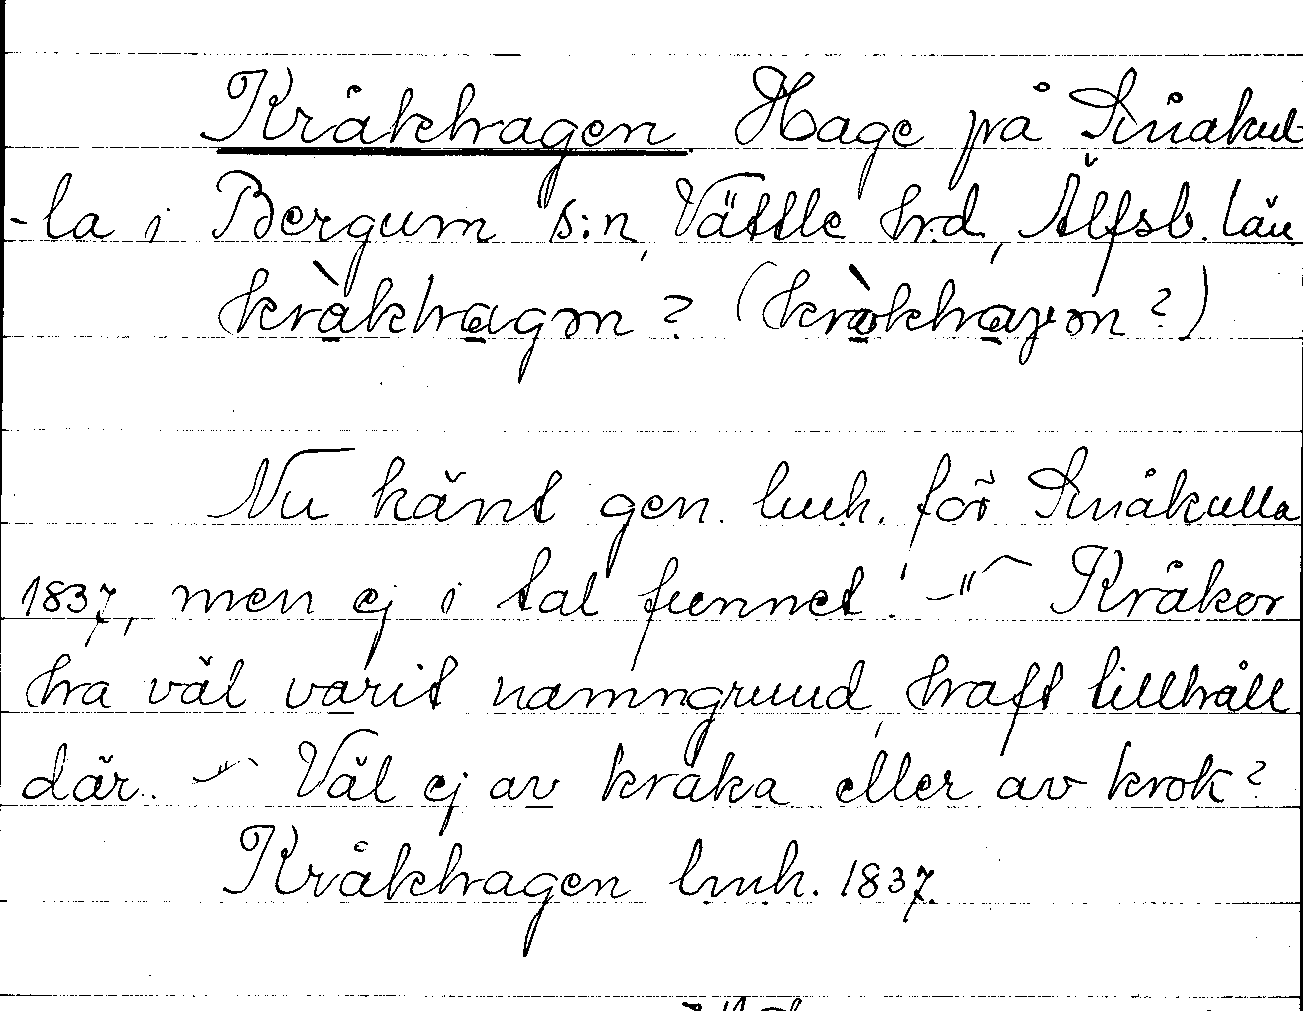 Kråkhagen. Hage på Knåkul-
-la i Bergum s:n, Vättle hrd, Älfsb. län
kràkhagən? (kròkhaɡən?)
Nu känt gen. lmh. för Knåkulla
1837, men ej i tal funnet. –"– Kråkor
ha väl varit namngrund, haft tillhåll
där. –"– Väl ej av kråka eller av krok?
Kråkhagen lmh. 1837.